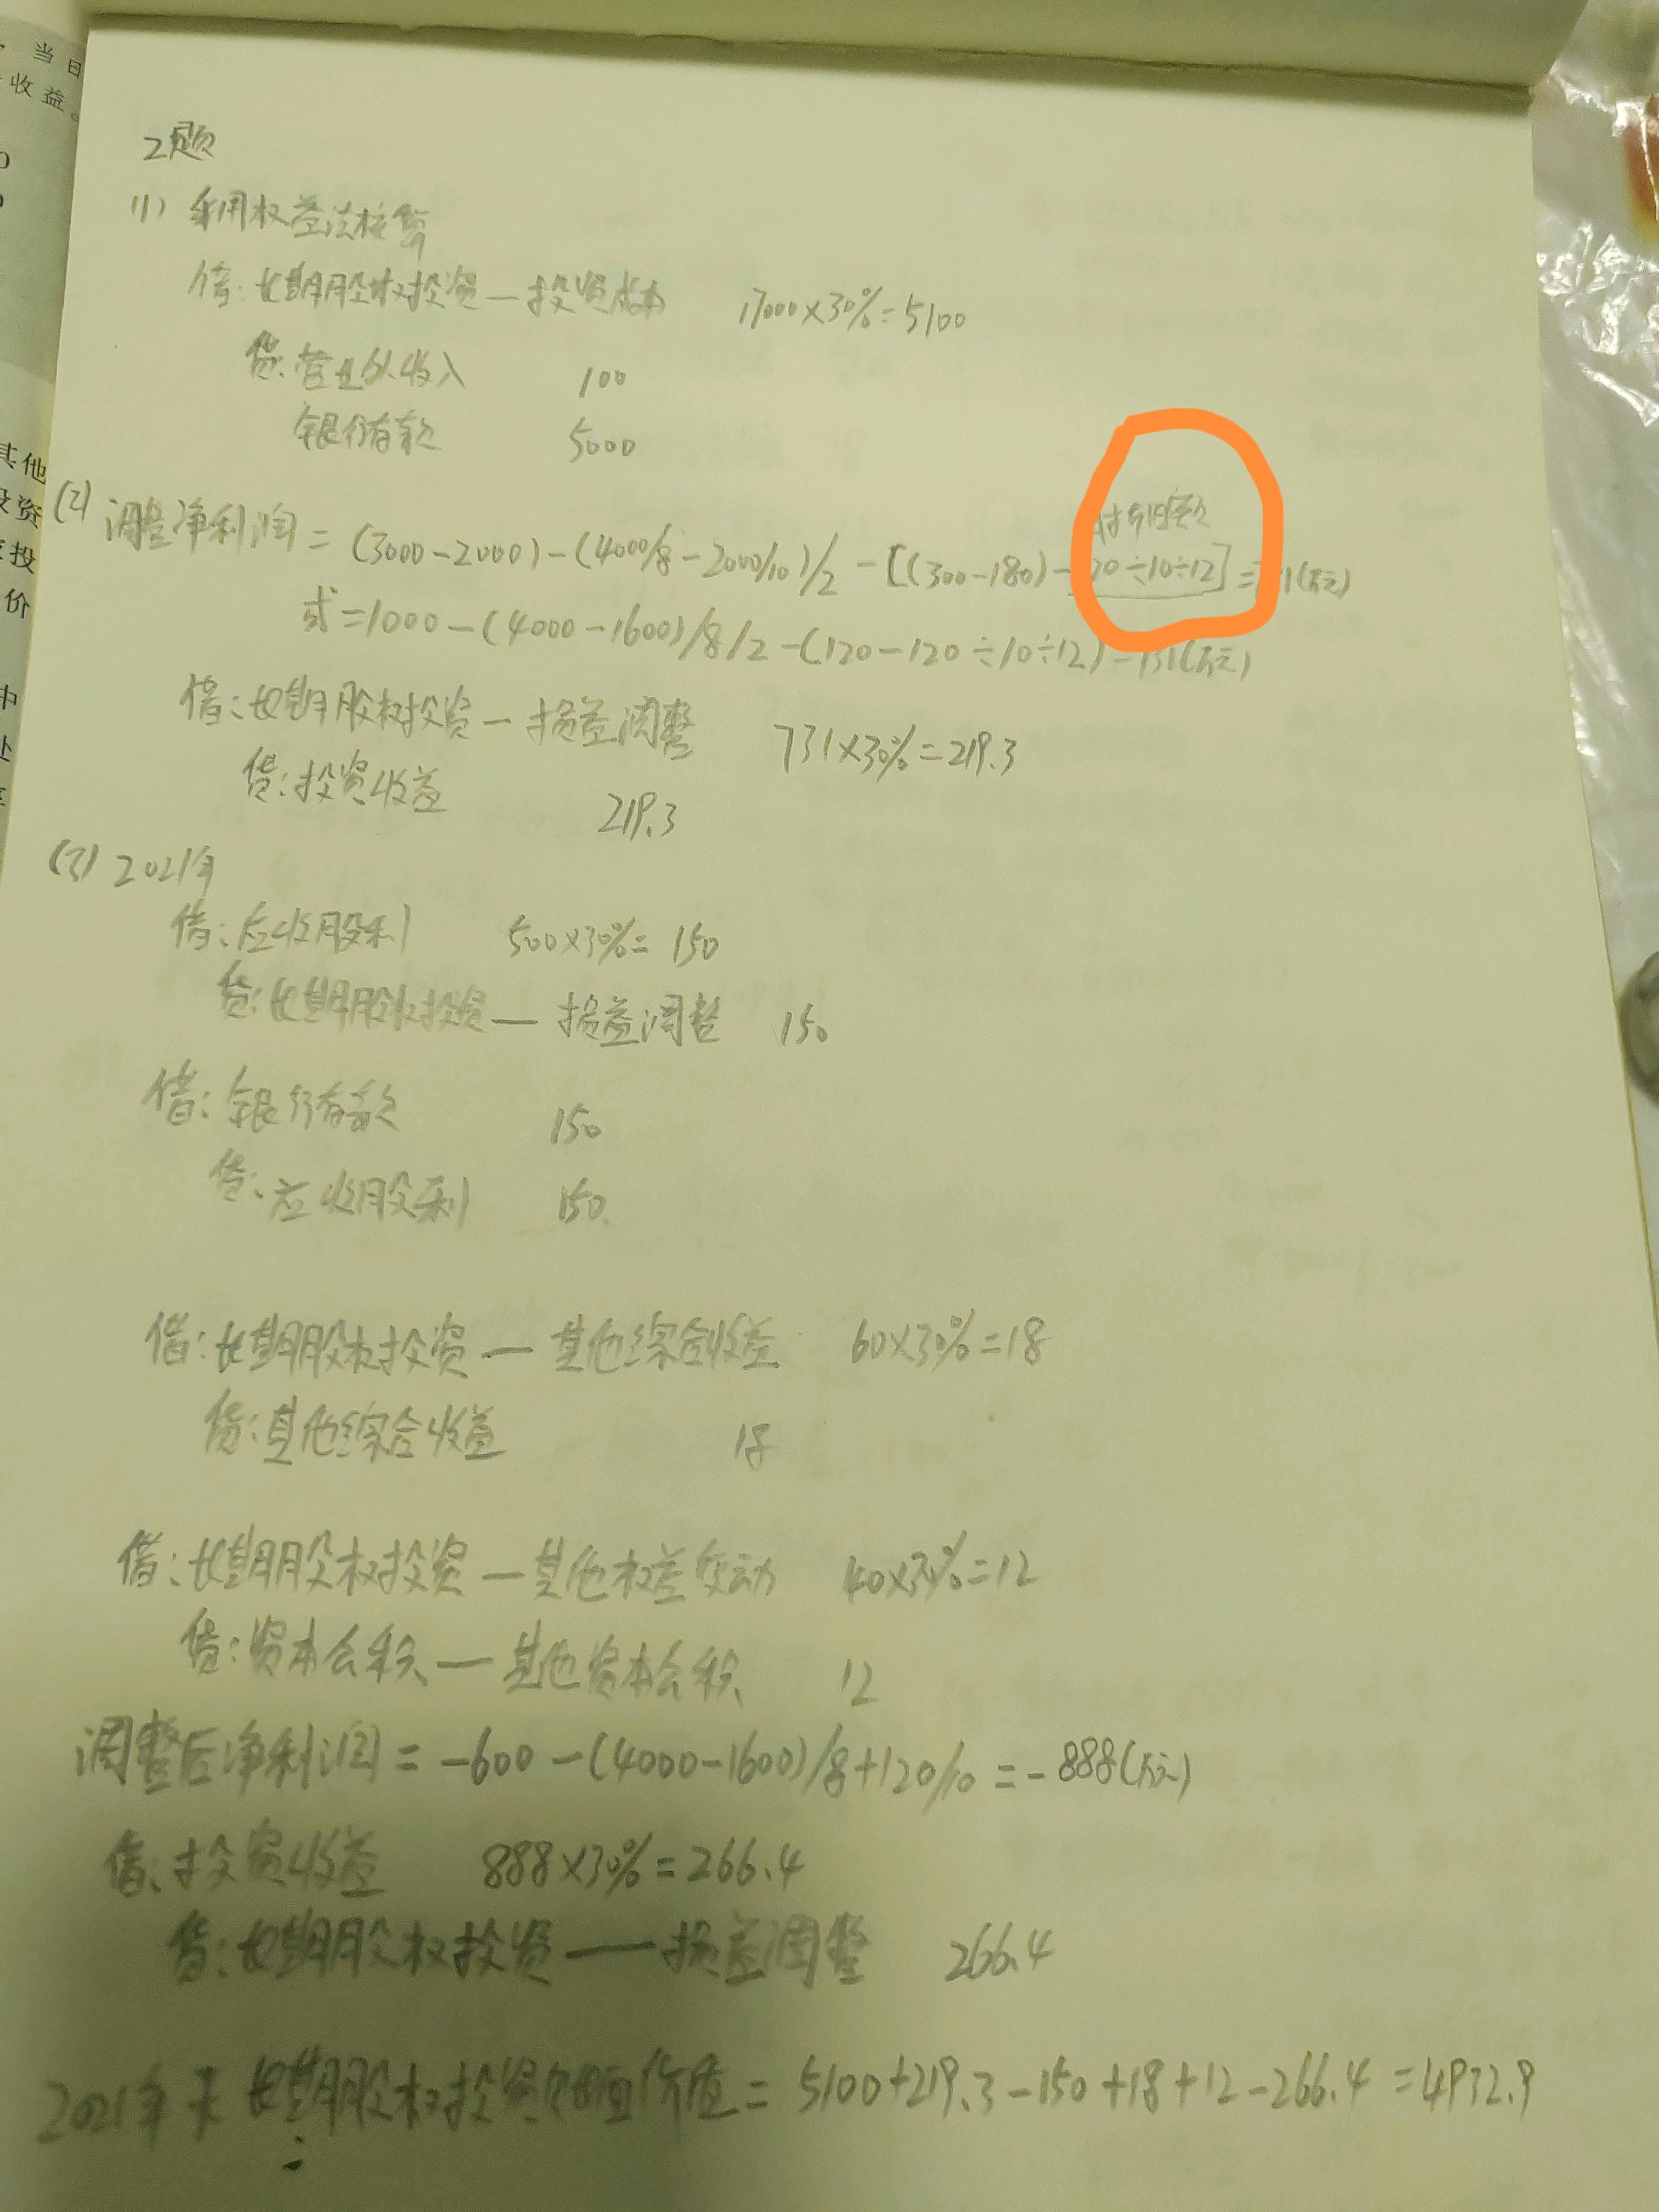 当日
收益。
其他
投资
投
价
中
2题
(1) 采用权益法核算
借:长期股权投资—投资成本 17000×30%=5100
贷:营业外收入 100
银行存款 5000
(2) 调整净利润=(3000-2000)-(4000/8-2000/10)/2-[(300-180)-20÷10÷12]=1(万元)
或=1000-(4000-1600)/8/2-(120-120÷10÷12)=731(万元)
借:长期股权投资—损益调整 731×30%=219.3
贷:投资收益 219.3
(3) 2021年
借:应收股利 500×30%=150
贷:长期股权投资—损益调整 150
借:银行存款 150
贷:应收股利 150
借:长期股权投资—其他综合收益 60×30%=18
贷:其他综合收益 18
借:长期股权投资—其他权益变动 40×30%=12
贷:资本公积—其他资本公积 12
调整后净利润=-600-(4000-1600)/8+120/10=-888(万元)
借:投资收益 888×30%=266.4
贷:长期股权投资——损益调整 266.4
2021年末长期股权投资的账面价值=5100+219.3-150+18+12-266.4=4932.9